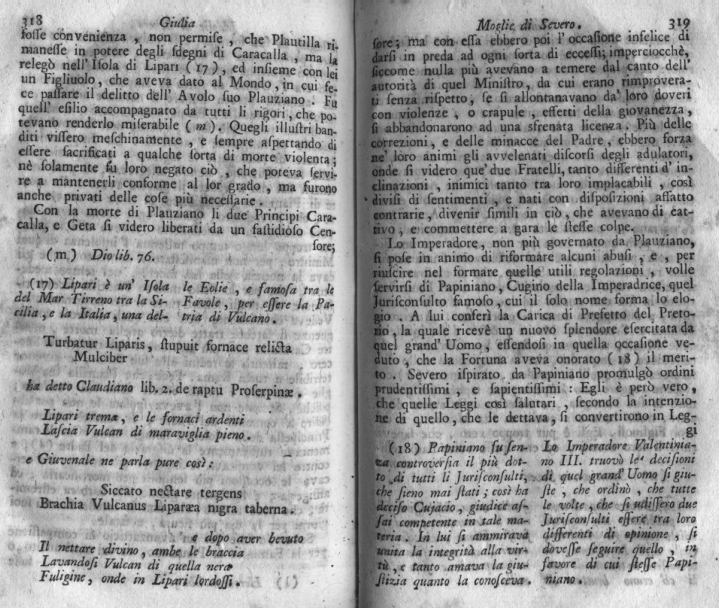 318 Giulia
fosse convenienza , non permise , che Plautilla ri-
manesse in potere degli sdegni di Caracalla , ma la
relegò nell' Isola di Lipari (17) , ed insieme con lei
un Figliuolo, che aveva dato al Mondo, in cui fe-
ce passare il delitto dell' Avolo suo Plauziano . Fu
quell' esilio accompagnato da tutti li rigori, che po-
tevano renderlo miserabile (m) . Quegli illustri ban-
diti vissero meschinamente , e sempre aspettando di
essere sacrificati a qualche sorta di morte violenta;
nè solamente fu loro negato ciò , che poteva servi-
re a mantenerli conforme al lor grado , ma furono
anche privati delle cose più necessarie .
Con la morte di Plauziano li due Principi Cara-
calla, e Geta si videro liberati da un fastidioso Cen-
sore;
(m) Dio lib. 76.
(17) Lipari è un' Isola
del Mar Tirreno tra la Si-
cilia , e la Italia, una del-
le Eolie , e famosa tra le
Favole , per essere la Pa-
tria di Vulcano .
Turbatur Liparis, stupuit fornace relicta
Mulciber
ha detto Claudiano lib. 2. de raptu Proserpinæ .
Lipari trema, e le fornaci ardenti
Lascia Vulcan di maraviglia pieno .
e Giuvenale ne parla pure così :
Siccato nectare tergens
Brachia Vulcanus Liparæa nigra taberna .
e dopo aver bevuto
Il nettare divino, ambe le braccia
Lavandosi Vulcan di quella nera
Fuligine , onde in Lipari lordossi .
Moglie di Severo . 319
sore; ma con essa ebbero poi l' occasione infelice di
darsi in preda ad ogni sorta di eccessi; imperciocchè,
siccome nulla più avevano a temere dal canto dell'
autorità di quel Ministro, da cui erano rimprovera-
ti senza rispetto, se si allontanavano da' loro doveri
con violenze , o crapule , effetti della giovanezza ,
si abbandonarono ad una sfrenata licenza . Più delle
correzioni , e delle minacce del Padre , ebbero forza
ne' loro animi gli avvelenati discorsi degli adulatori,
onde si videro que' due Fratelli, tanto differenti d' in-
clinazioni , inimici tanto tra loro implacabili , così
divisi di sentimenti , e nati con disposizioni affatto
contrarie , divenir simili in ciò , che avevano di cat-
tivo , e commettere a gara le stesse colpe .
Lo Imperadore , non più governato da Plauziano,
si pose in animo di riformare alcuni abusi , e , per
riuscire nel formare quelle utili regolazioni , volle
servirsi di Papiniano , Cugino della Imperadrice, quel
Jurisconsulto famoso , cui il solo nome forma lo elo-
gio . A lui conferì la Carica di Prefetto del Preto-
rio , la quale ricevè un nuovo splendore esercitata da
quel grand' Uomo , essendosi in quella occasione ve-
duto , che la Fortuna aveva onorato (18) il meri-
to . Severo ispirato da Papiniano promulgò ordini
prudentissimi , e sapientissimi : Egli è però vero,
che quelle Leggi così salutari , secondo la intenzio-
ne di quello , che le dettava, si convertirono in Leg-
gi
(18) Papiniano fu sen-
za controversia il più dot-
to di tutti li Jurisconsulti,
che sieno mai stati ; così ha
deciso Cujacio, giudice as-
sai competente in tale ma-
teria . In lui si ammirava
unita la integrità alla vir-
tù , e tanto amava la giu-
stizia quanto la conosceva .
Lo Imperadore Valentinia-
no III. truovò le decisioni
di quel grand' Uomo sì giu-
ste , che ordinò , che tutte
le volte , che si udissero due
Jurisconsulti essere tra loro
differenti di opinione , si
dovesse seguire quello , in
favore di cui stesse Papi-
niano .